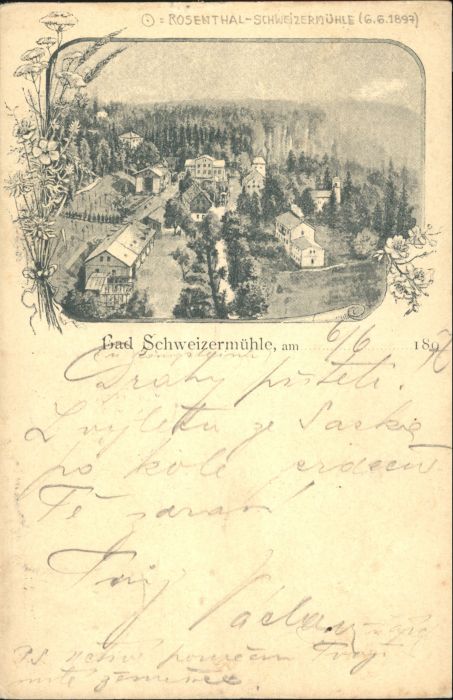 ⊙ = ROSENTHAL-SCHWEIZERMÜHLE (6.6.1897)
Bad Schweizermühle, am 6/6 1897
Drahý příteli.
Z výletu ze Saska
po kole srdečně
Tě zdraví
Tvůj Václav
P.S. Tvojí
milé